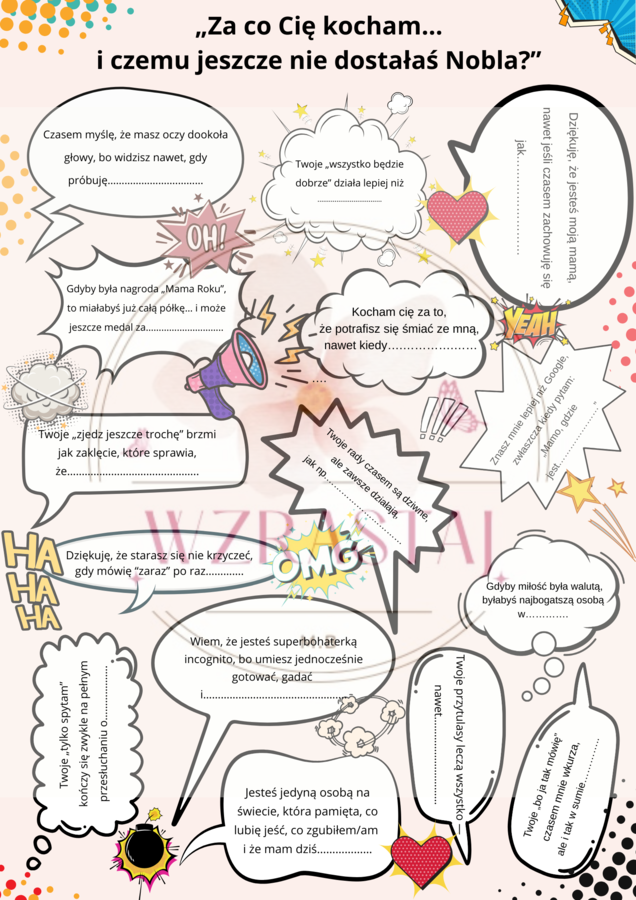 „Za co Cię kocham...
i czemu jeszcze nie dostałaś Nobla?”
Czasem myślę, że masz oczy dookoła
głowy, bo widzisz nawet, gdy
próbuję.................................
Twoje „wszystko będzie
dobrze” działa lepiej niż
.................................
Dziękuję, że jesteś moją mamą,
nawet jeśli czasem zachowuję się
jak.........................
OH!
Gdyby była nagroda „Mama Roku”,
to miałabyś już całą półkę... i może
jeszcze medal za...........................
Kocham cię za to,
że potrafisz się śmiać ze mną,
nawet kiedy........................
....
YEAH
Znasz mnie lepiej niż Google,
zwłaszcza kiedy pytam:
„Mamo, gdzie
jest....................”
Twoje „zjedz jeszcze trochę” brzmi
jak zaklęcie, które sprawia,
że......................................
Twoje rady czasem są dziwne,
ale zawsze działają,
jak np.........................
!!!
WZRASTAJ
HA
HA
HA
Dziękuję, że starasz się nie krzyczeć,
gdy mówię “zaraz” po raz.............
OMG
Gdyby miłość była walutą,
byłabyś najbogatszą osobą
w.............
Wiem, że jesteś superbohaterką
incognito, bo umiesz jednocześnie
gotować, gadać
i..............................................
Twoje „tylko spytam”
kończy się zwykle na pełnym
przesłuchaniu o....................
Twoje przytulasy leczą wszystko –
nawet.............................
Twoje „bo ja tak mówię”
czasem mnie wkurza,
ale i tak w sumie....................
Jesteś jedyną osobą na
świecie, która pamięta, co
lubię jeść, co zgubiłem/am
i że mam dziś..................